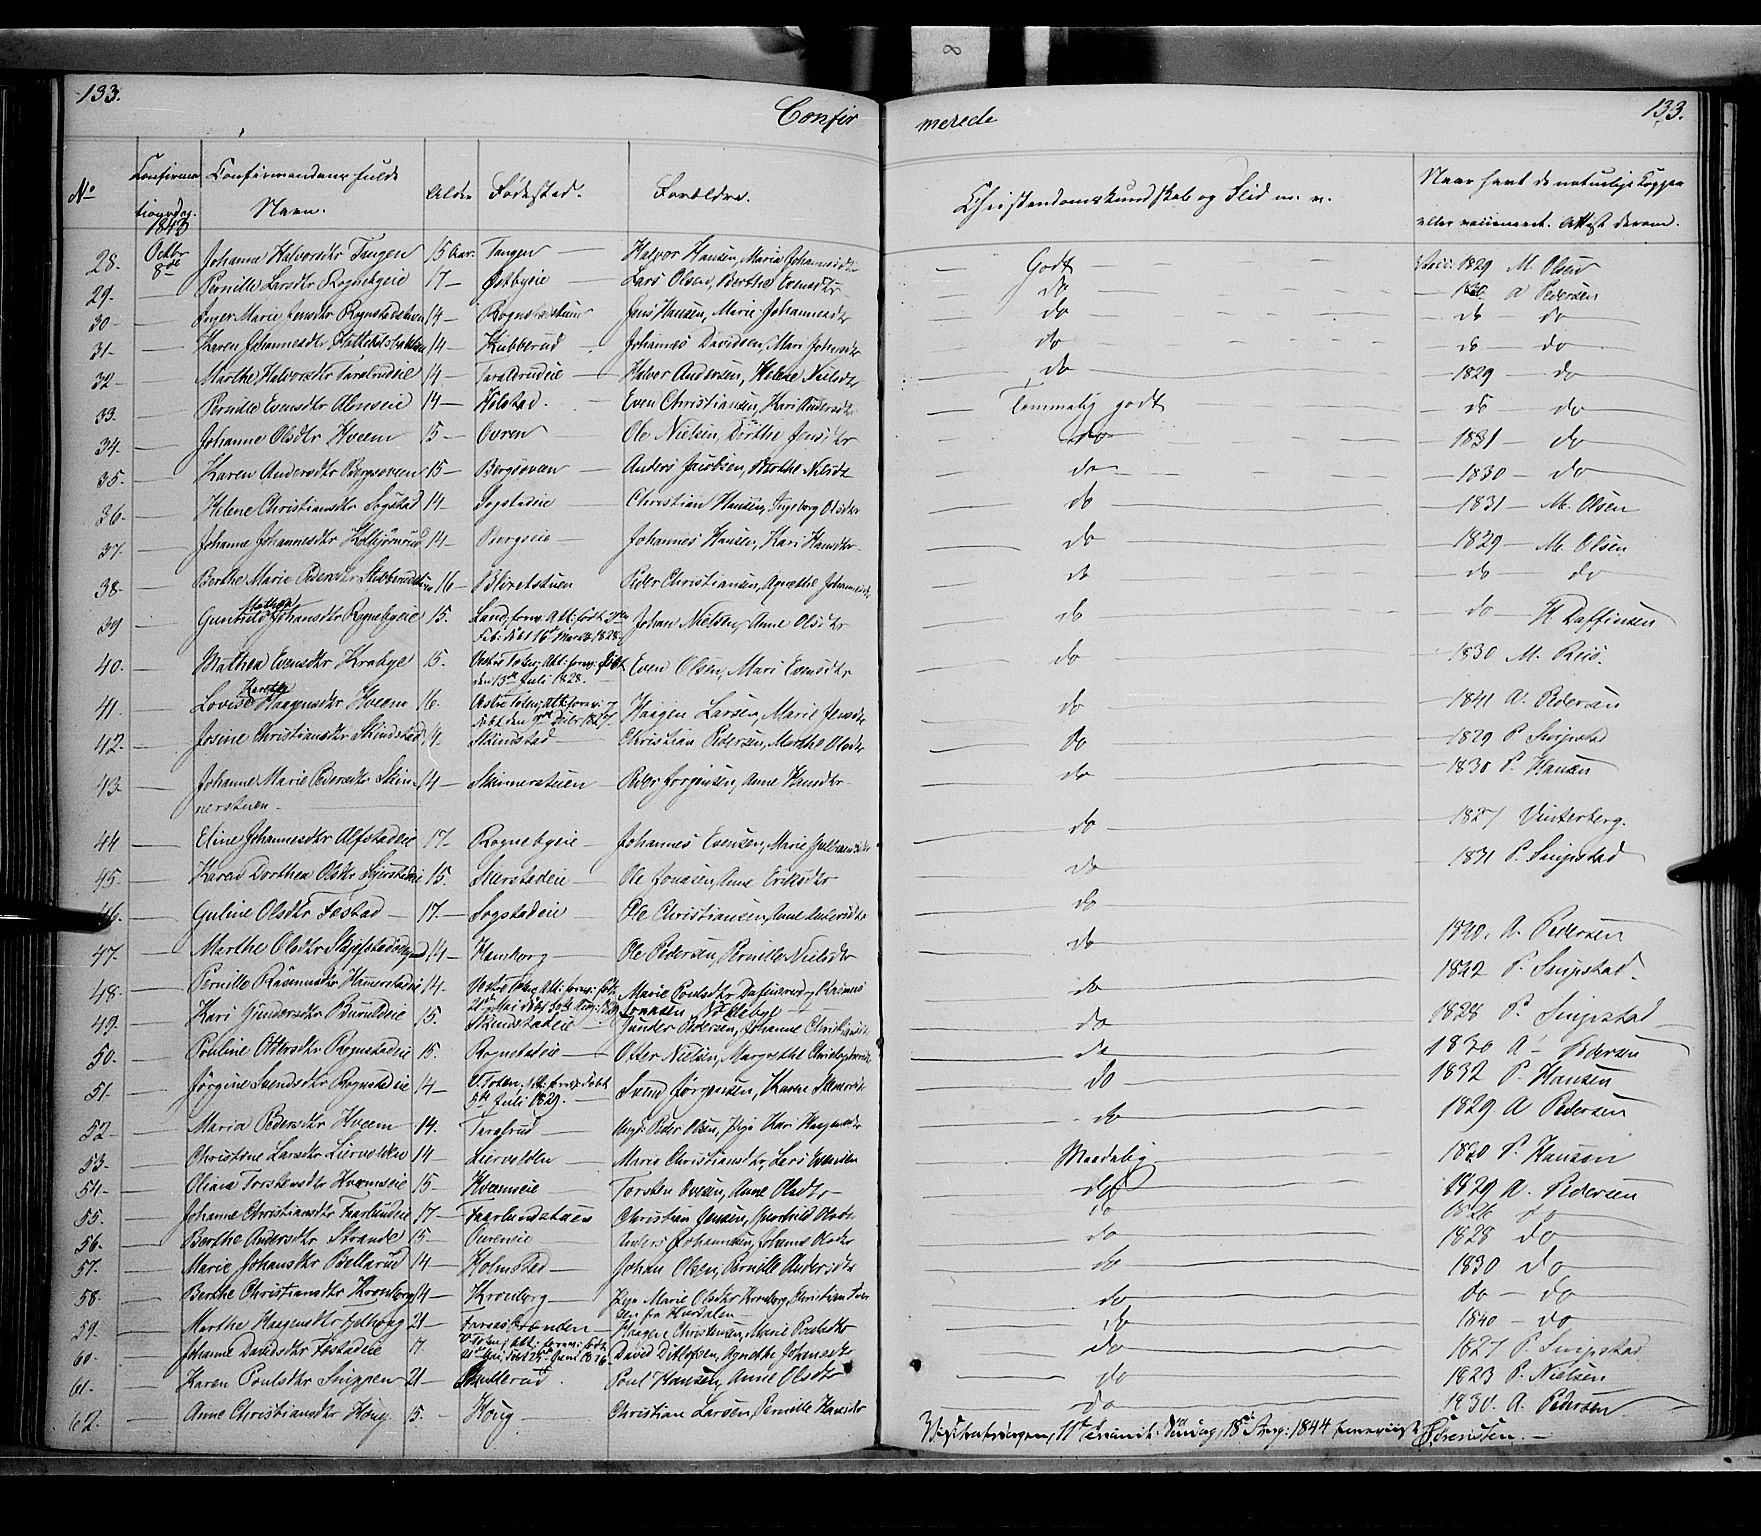 133.
Confir
merede
133.
No
Confirma
tionsdag.
Confirmandens fulde
Navn.
Alder
Fødested.
Forældre.
Christendomskundskab og Flid m. v.
Naar havt de naturlige Kopper
eller vaccineret. Attest derom.
1843
28. Octbr 8de Johanne Halvorsdtr Tangen 15 Aar. Tangen Halvor Hansen, Maria Johannesdtr Godt 1829 M. Olsen
29. Pernille Larsdtr Rognebyeie 17 Østbyeie Lars Olsen, Berthe Evensdtr do 1830 A Pedersen
30 Inger Marie Jensdtr 14 Jens Hansen, Marie Johannesdtr do do do
31. Karen Johannesdtr 14 Kubberud Johannes Davidsen, Mari Johnsdtr do do do
32 Marthe Halvorsdtr Taralrudeie 14 Taralrudeie Halvor Andersen, Helene Nielsdtr do 1829 do
33. Pernille Evensdtr Almseie 14 Hølstad. Even Christiansen, Kari Andersdtr Temmelig godt do do
34. Johanne Olsdtr Hveem 15 Ovren Ole Nielsen, Dorthe Jensdtr do 1831 do
35. Karen Andersdtr Bergsoven 15 Bergsovan Anders Jacobsen, Berthe Nilsdtr do 1830 do
36 Helene Christiansdtr Sogstad 14 Sogstadeie Christian Hansen, Ingeborg Olsdtr do 1831 M. Olsen
37 Johanne Johannesdtr 14 Bergseie Johannes Hansen, Kari Hansdtr do 1829 M. Olsen
38. Berthe Marie Pedersdtr 16 Peder Christiansen, Agnethe Johannesdtr do do do
39 Gunhild Mathea Johansdtr Rognebyeie 15. Land, forev. Att: født 3die
Feb: døbt 16de Marts 1828. Johan Nielsen, Anne Olsdtr do do H. Daffinsen
40. Mathea Evensdtr Krabye 15. Vestre Toten, Att: forev: født
den 13de Juli 1828. Even Olsen, Mari Evensdtr do 1830 M. Reis.
41. Lovise Karethe Haagensdtr Hveem 16. Vestre Toten, Att: forev:
Haagen Larsen, Marie Jensdtr do 1841 A. Pedersen
42. Josine Christiansdtr Skindstad 14. Skindstad Christian Pedersen, Marthe Olsdtr do 1829 P. Snipstad
43. Johanne Marie Pedersdtr Skin-
nerstuen. 14 Skinnerstuen Peder Jørgensen, Anne Hansdtr do 1830 P. Hansen
44 Eline Johannesdtr Alfstadeie 17. Rognebyeie Johannes Evensen, Marie do 1827 Vinterberg.
45. Karen Dorthea Olsdtr Skierstadeie 15. Skierstadeie Ole Jonasen, Anne Eriksdtr do 1831 P. Snipstad
46. Guline Olsdtr Føstad 17. Sogstadeie Ole Christiansen, Anne Andersdtr do
47. Marthe Olsdtr 14 Ole Pedersen, Pernille Nielsdtr do A. Pedersen
48. Pernille Rasmusdtr Hamerstadeie 14. Vestre Toten, Att: forev: født
Marie Poulsdtr do 1842 P. Snipstad.
49. Kari Gundersdtr 15. Skindstadeie Gunder Pedersen, Johanne Christiansdtr do 1828 P. Snipstad
50. Pouline Ottersdtr Rognstadeie 15. Rognstadeie Otter Nielsen, Margrethe Christophersdtr do 1830 A Pedersen
51. Jørgine Svendsdtr Rognstadeie 14 V. Toten, Att: forev: døbt
5te Juli 1829. Svend Jørgensen, Karen do 1832 P. Hansen
52 Maria Pedersdtr Hveem 14. Taralrud Peder Olsen, Pige Kari Haagensdtr do 1829 A Pedersen
53. Christine Larsdtr Liervolden 14 Liervolden Marie Christiansdtr, Lars Evensen Maadelig P. Hansen
54. Olina Torstensdtr Hveemseie 15 Hveemseie Torsten Ovesen, Anne Olsdtr do 1829 A. Pedersen
55. Johanne Christiansdtr Faarlundeie 17 Faarlundstuen Christian Jensen, Gunhild Olsdtr do 1826 do
56. Berthe Andersdtr Strande 15 Ovreneie Anders Johannesen, Johanne Olsdtr do 1828 do
57. Marie Johansdtr Bellerud 14 Holmstad Johan Olsen, Pernille Andersdtr do 1830 do
58. Berthe Christiansdtr Kronborg 14 Kronborg Pige Marie Olsdtr Kronborg, Christian
fra do do do
59. Marthe Haagensdtr 21 Haagen Christensen, Marie Poulsdtr do 1840 do
60. Johanne Davidsdtr Føstadeie 17. V. Toten, Att: forev: født
David Ditlofsen, Agnethe Johansdtr do 1827 P. Snipstad
61. Karen Poulsdtr Snippen 21 Poul Hansen, Anne Olsdtr do 1823 P. Nielsen
62. Anne Christiansdtr Houg. 15. Houg Christian Larsen, Pernille Hansdtr do 1830. A. Pedersen
18de Aug: 1844 Sørensen.